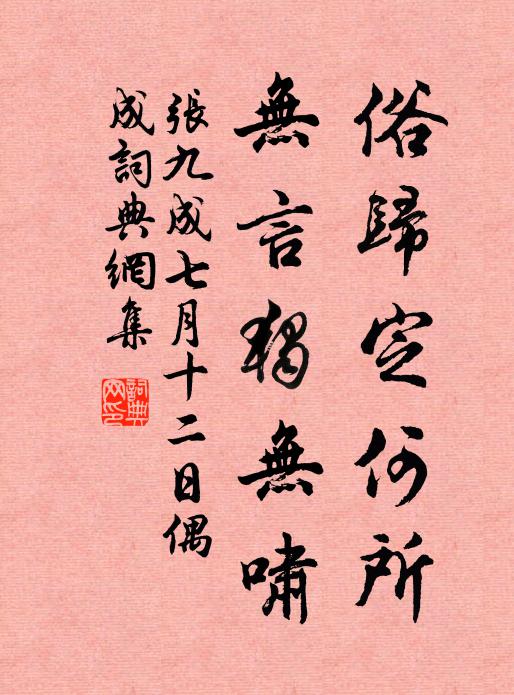 俗歸定何所
無言獨無嘯
張九成七月十二日偶
成詞典網集
詞典網印